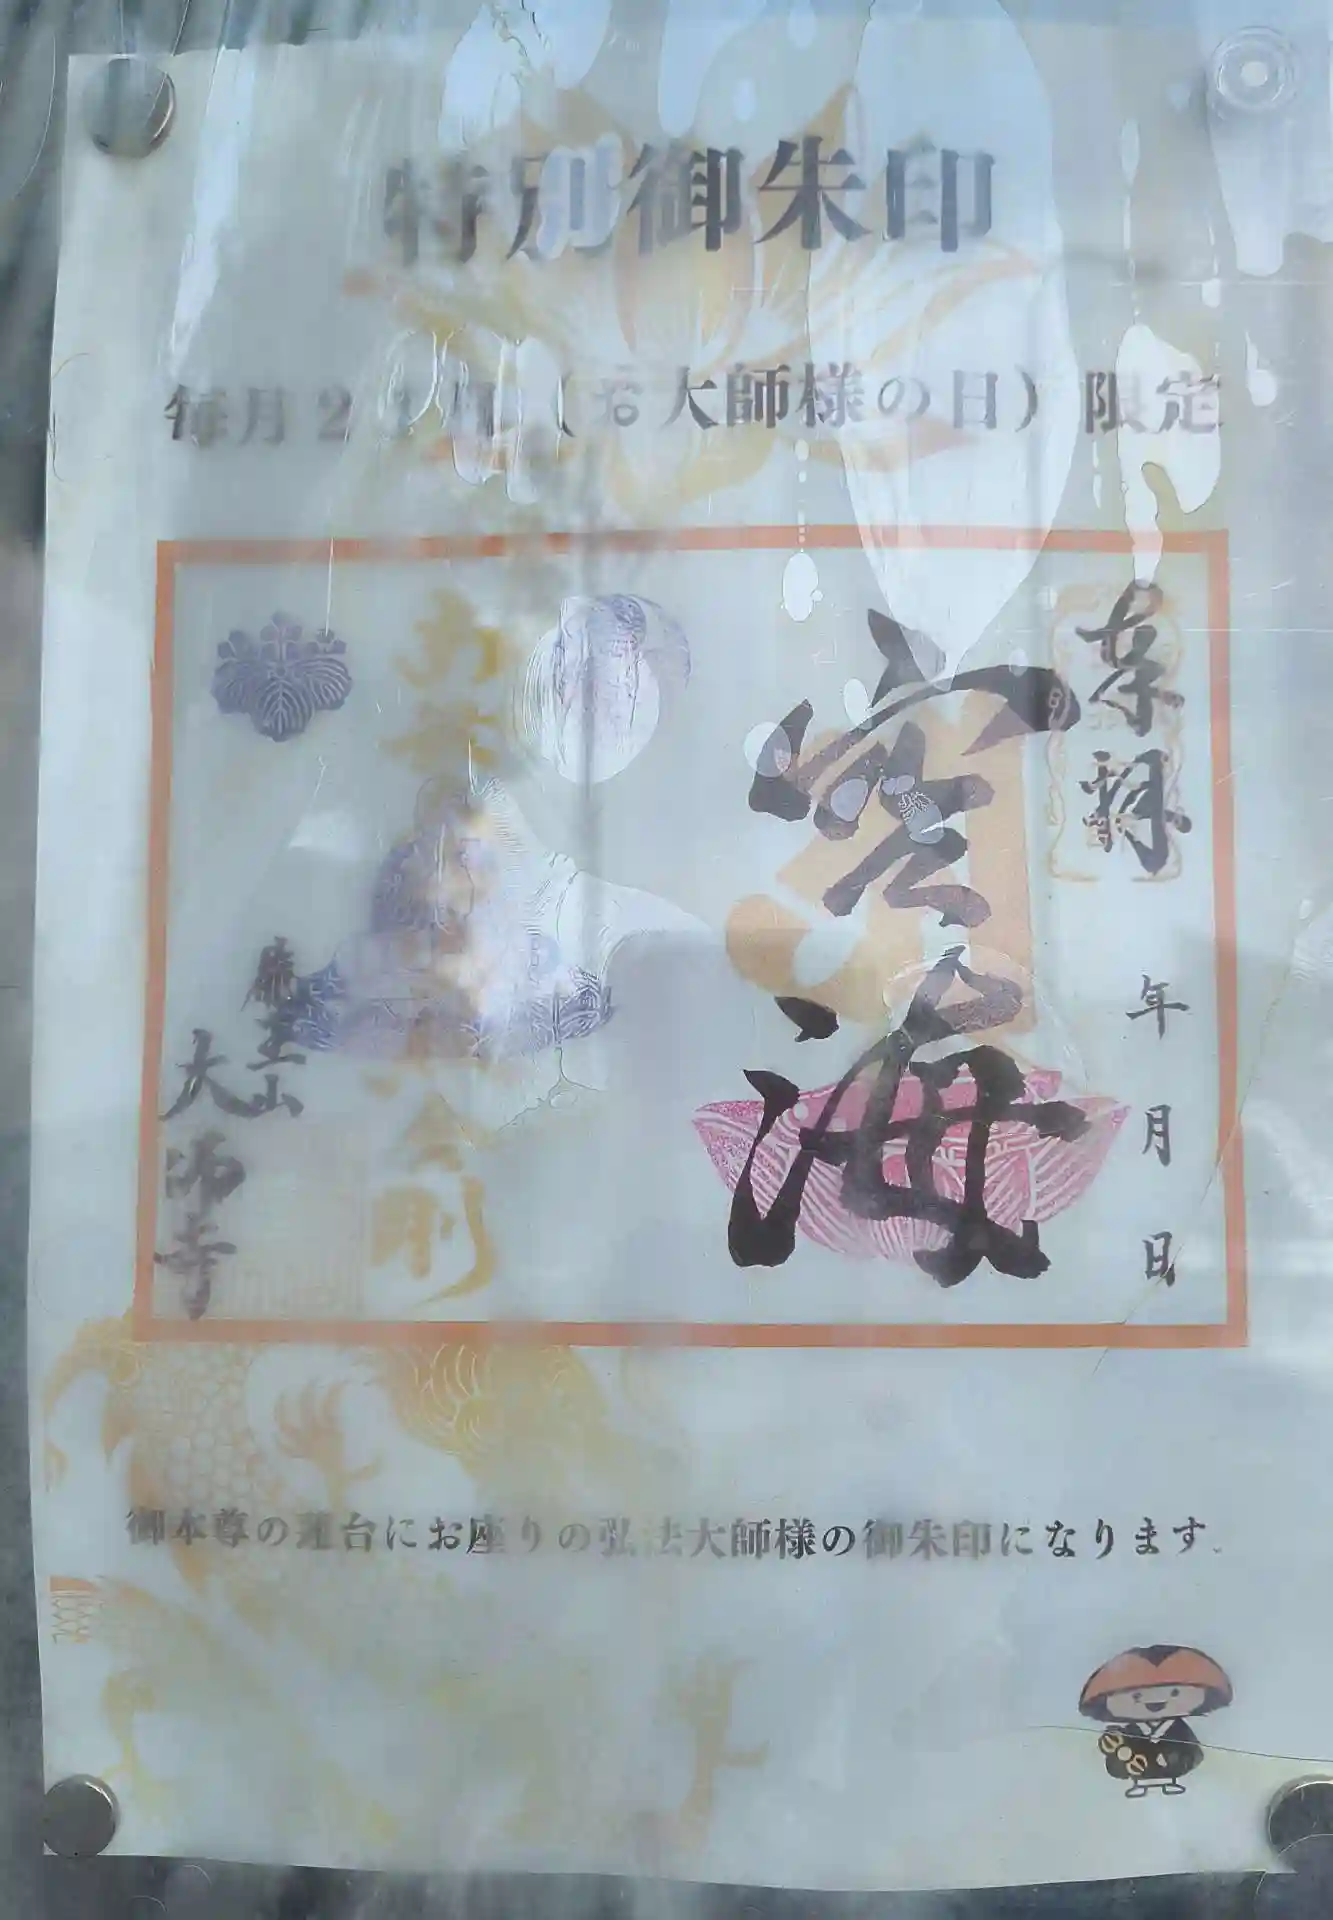 特別御朱印
毎月21日（お大師様の日）限定
奉拝
年 月 日
空海
大師寺
御本尊の蓮台にお座りの弘法大師様の御朱印になります。